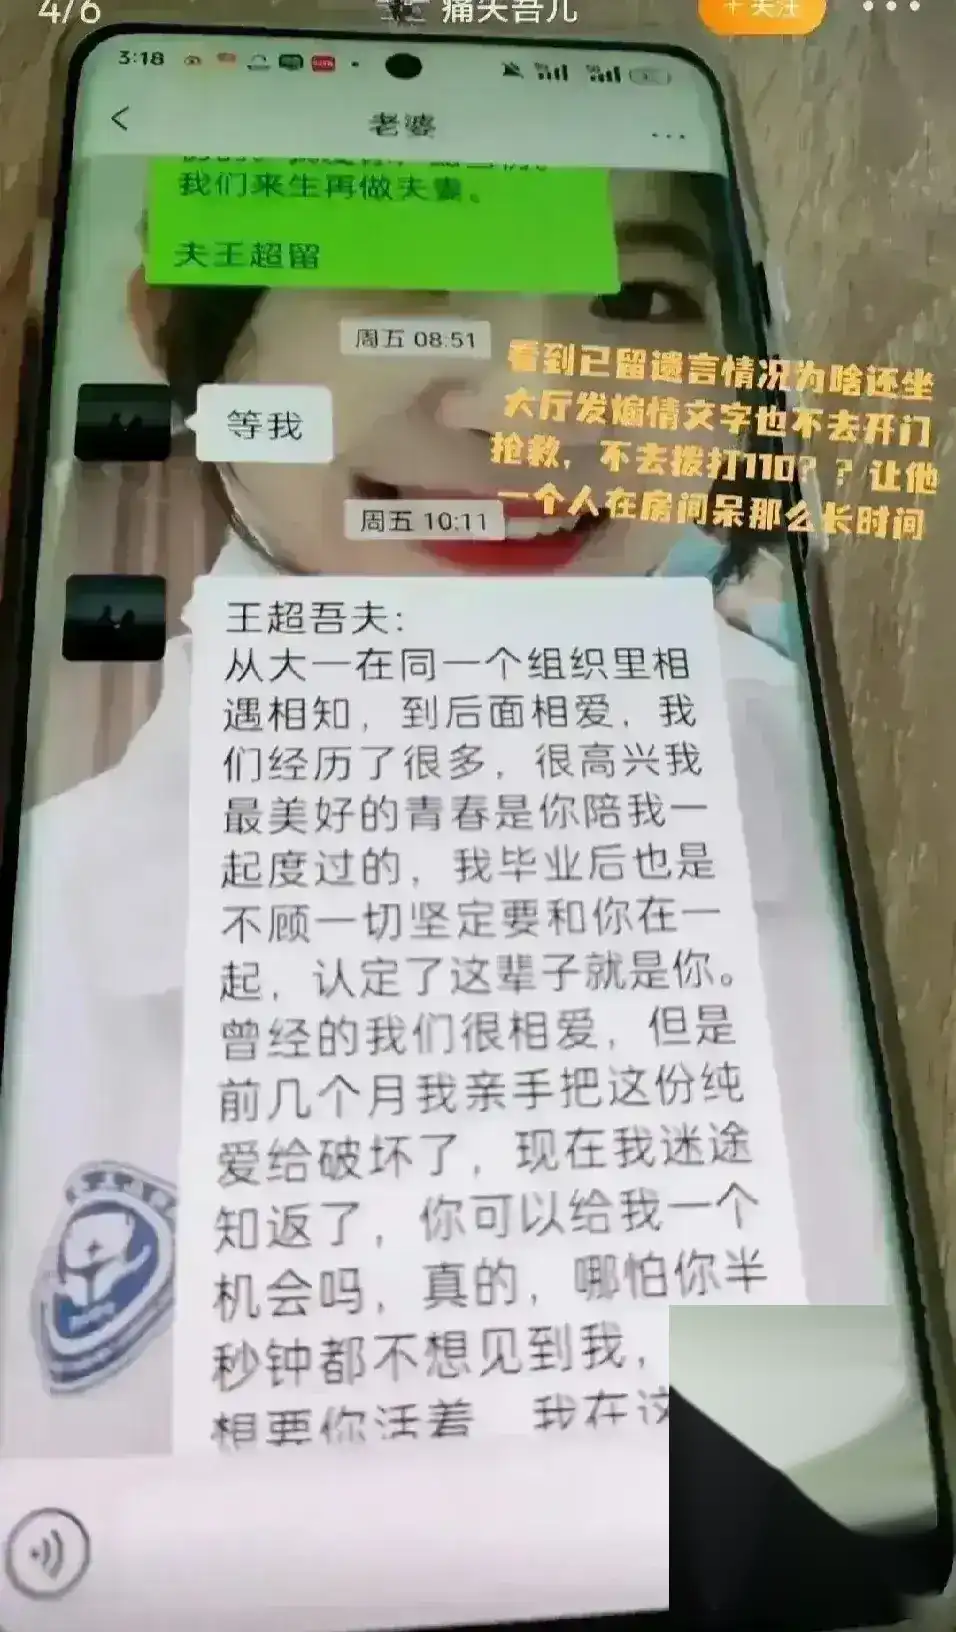 4/6
痛失吾儿
+关注
3:18
老婆
我们来生再做夫妻。
夫王超留
周五 08:51
等我
看到已留遗言情况为啥还坐
大厅发煽情文字也不去开门
抢救，不去拨打110？？让他
一个人在房间呆那么长时间
周五 10:11
王超吾夫：
从大一在同一个组织里相
遇相知，到后面相爱，我
们经历了很多，很高兴我
最美好的青春是你陪我一
起度过的，我毕业后也是
不顾一切坚定要和你在一
起，认定了这辈子就是你。
曾经的我们很相爱，但是
前几个月我亲手把这份纯
爱给破坏了，现在我迷途
知返了，你可以给我一个
机会吗，真的，哪怕你半
秒钟都不想见到我，
想要你活着 我在这